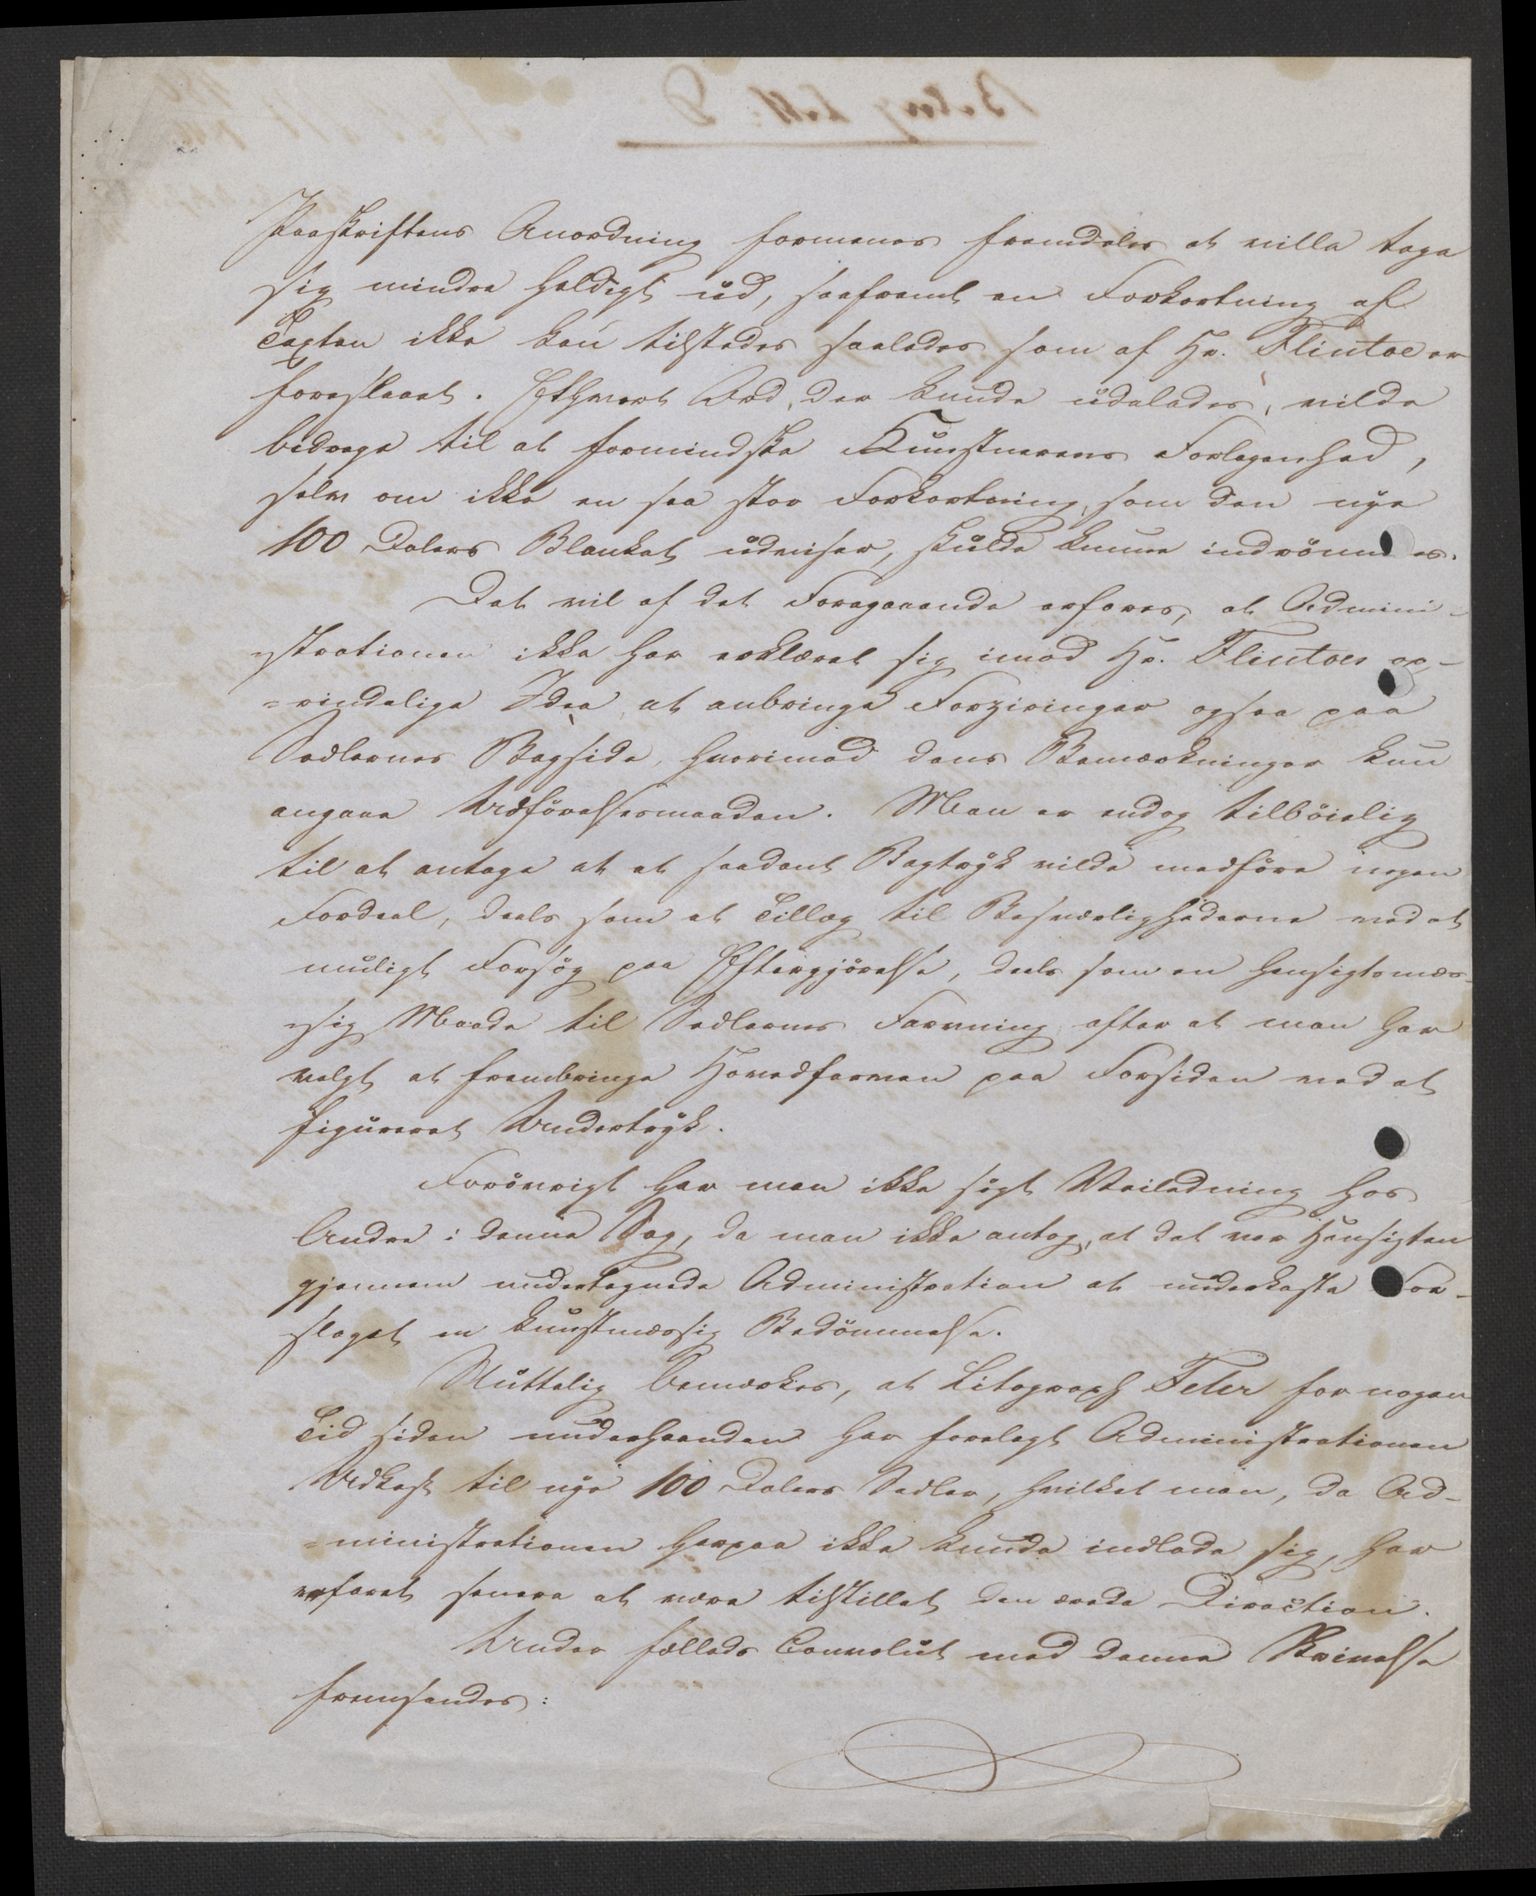 Paaskriftens Anordning formenes fremdeles at ville tage
sig mindre heldigt ud, saafremt en Forkortning af
Texten ikke kan tilstedes saaledes som af Hr. Flintoe er
foreslaaet. Ethvert Ord, der kunde udelades, vilde
bidrage til at formindske Kunstnerens Forlegenhed,
selv om ikke en saa stor Forkortning, som den nye
100 Dalers Blanket udviser, skulde kunne indrömmes.
Det vil af det Foregaaende erfares, at Admini-
strationen ikke har erklæret sig imod Hr. Flintoes op-
=rindelige Idee at anbringe Forziringer ogsaa paa
Sedlernes Bagside, hvorimod dens Bemærkninger kun
angaae Udförelsesmaaden. Man er endog tilböielig
til at antage at et saadant Bagtryk vilde medföre nogen
Fordeel, deels som et Tillæg til Besværlighederne ved et
muligt Forsög paa Eftergjörelse, deels som en hensigtsmæs-
sig Maade til Sedlernes Farvning efter at man har
valgt at frembringe Hovedfarven paa Forsiden ved et
figureret Undertryk.
Forövrigt har man ikke sögt Veiledning hos
Andre i denne Sag, da man ikke antog, at det var Hensigten
gjennem undertegnede Administration at underkaste For-
slaget en kunstmæssig Bedömmelse.
Sluttelig bemærkes, at Litograph Fehr for nogen
Tid siden underhaanden har forelagt Administrationen
Udkast til nye 100 Dalers Sedler, hvilket man, da Ad-
=ministrationen herpaa ikke kunde indlade sig, har
erfaret senere at være tilstillet den ærede Direction.
Under fælleds Convolut med denne Skrivelse
fremsendes: